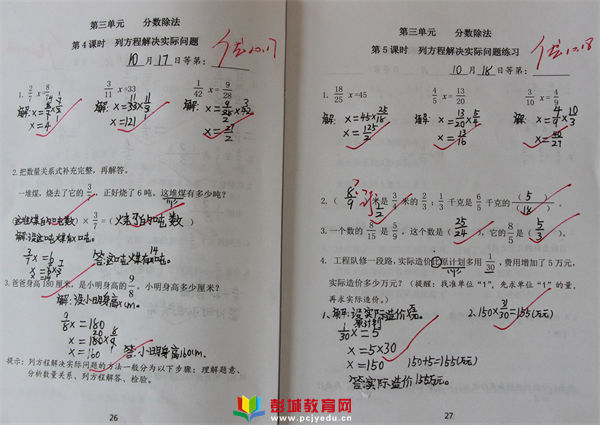 第三单元 分数除法
第4课时 列方程解决实际问题
10月17日等第：
优10.17
1. 2/7 x=8/14 3/11 x=33 1/42 x=9/28
解：
x=4
解：x=33×11/3
x=121
解：
x=27/2
2.把数量关系式补充完整，再解答。
一堆煤，烧去了它的3/7，正好烧了6吨。这堆煤有多少吨？
(这堆煤的吨数)×3/7=(烧了的吨数)
解：设这吨煤有x吨。
3/7x=6
x=14
答：这吨煤有14吨。
3.爸爸身高180厘米，是小明身高的9/8。小明身高多少厘米？
解：设小明身高xcm。
9/8x=180
x=180×8/9
x=160
答：小明身高160cm。
提示：列方程解决实际问题的方法一般分为以下步骤：理解题意、
分析数量关系、列方程解答、检验。
26
第三单元 分数除法
第5课时 列方程解决实际问题练习
10月18日等第：
优10.18
1. 18/25 x=45 4/5 x=13/20 3/10 x=4/9
解：x=45×25/18
x=125/2
解：x=13/20×5/4
x=13/16
解：x=4/9×10/3
x=40/27
2.（8/9）米是3/米的2/3；1千克是6/5千克的（5/18）。
3.一个数的8/15是5/9，这个数是（25/24），它的8/5是（5/3）。
4. 工程队修一段路，实际造价比原计划多用1/30，费用增加了5万元，
实际造价多少万元？（提醒：找准单位“1”，先求单位“1”的量，
再求实际造价。）
1、解：设原计划造价x元。
1/30x=5
x=5×30
x=150
150+5=155(万元)
答：实际造价155万元。
2、150×31/30=155(万元)
27
彭城教育网
www.pcjyedu.cn